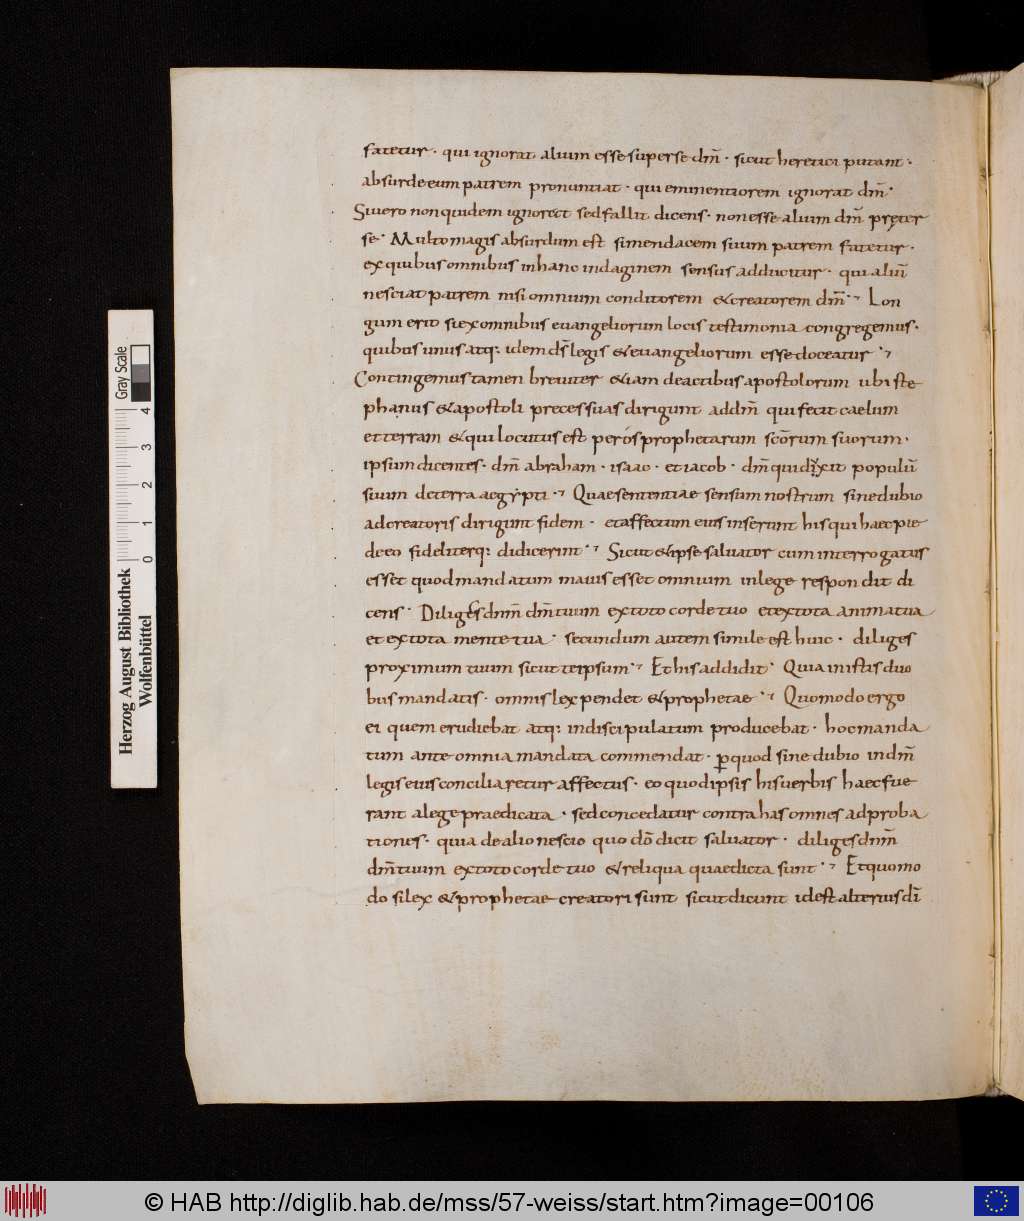 fatetur · qui ignorat alium esse super se dm̄ · sicut heretici putant ·
absurde eum patrem pronuntiat · qui eminentiorem ignorat dm̄ ·
Si uero non quidem ignorect sed fallit dicens · non esse alium dm̄ pręter
se · Multo magis absurdum est si mendacem suum patrem fatetur ·
ex quibus omnibus in hanc indaginem sensus adducitur · qui aliū
nesciat patrem nisi omnium conditorem & creatorem dm̄ · Lon
gum erit si ex omnibus euangeliorum locis testimonia congregemus ·
quibus unus atq: idem ds̄ legis & euangeliorum esse doceatur ·
Contingemus tamen breuiter & iam de actibus apostolorum ubi ste
phanus & apostoli preces suas dirigunt ad dm̄ qui fecit caelum
et terram & qui locutus est per ós prophetarum sc̄orum suorum ·
ipsum dicentes · dm̄ abraham · isaac · et iacob · dm̄ qui dixit populū
suum de terra aegypti · Quae sententiae sensum nostrum sine dubio
ad creatoris dirigunt fidem · et affectum eius inserunt his qui haec pie
de eo fideliterq: didicerint · Sicut & ipse saluator cum interrogatus
esset quod mandatum maius esset omnium in lege respondit di
cens · Diliges dnm̄ dm̄ tuum ex toto corde tuo et ex tota anima tua
et ex tota mente tua · secundum autem simile est huic · diliges
proximum tuum sicut te ipsum · Et his addidit · Quia in istis duo
bus mandatis · omnis lex pendet & prophetae · Quomodo ergo
ei quem erudiebat atq: indiscipulatum producebat · hoc manda
tum ante omnia mandata commendat · ꝑ quod sine dubio in dm̄
legis eius conciliaretur affectus · eo quod ipsis his uerbis haec fue
rant a lege praedicata · sed concedatur contra has omnes adproba
tiones · quia de alio nescio quo dō dicit saluator · diliges dnm̄
dm̄ tuum ex toto corde tuo & reliqua quae dicta sunt · Et quomo
do si lex & prophetae creatori sunt sicut dicunt id est alterius dī
Herzog August Bibliothek
Wolfenbüttel
Gray Scale
0 1 2 3 4
© HAB http://diglib.hab.de/mss/57-weiss/start.htm?image=00106